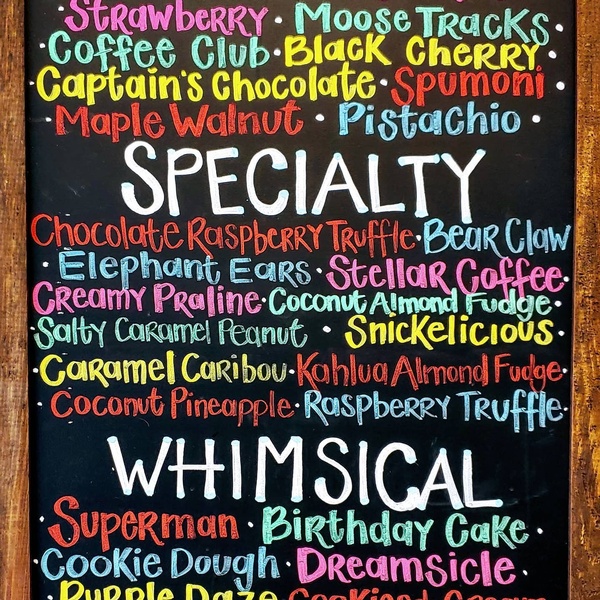 Strawberry · Moose Tracks
Coffee Club · Black Cherry ·
· Captain's Chocolate · Spumoni ·
· Maple Walnut · Pistachio ·
SPECIALTY
Chocolate Raspberry Truffle · Bear Claw
· Elephant Ears · Stellar Coffee ·
Creamy Praline · Coconut Almond Fudge ·
Salty Caramel Peanut · Snickelicious
· Caramel Caribou · Kahlua Almond Fudge ·
· Coconut Pineapple · Raspberry Truffle ·
WHIMSICAL
· Superman · Birthday Cake ·
· Cookie Dough · Dreamsicle ·
Purple Daze · Cookies